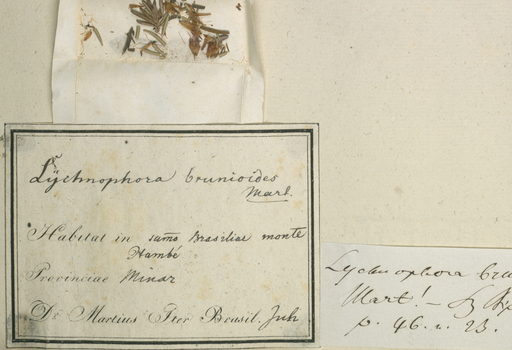 Lychnophora brunioides
Mart.
Habitat in summo Brasiliae monte
Itambé
Provinciae Minar
Dr. Martius Iter Brasil. Jul.
Lychnophora bru
Mart! —
p. 46. n. 23.